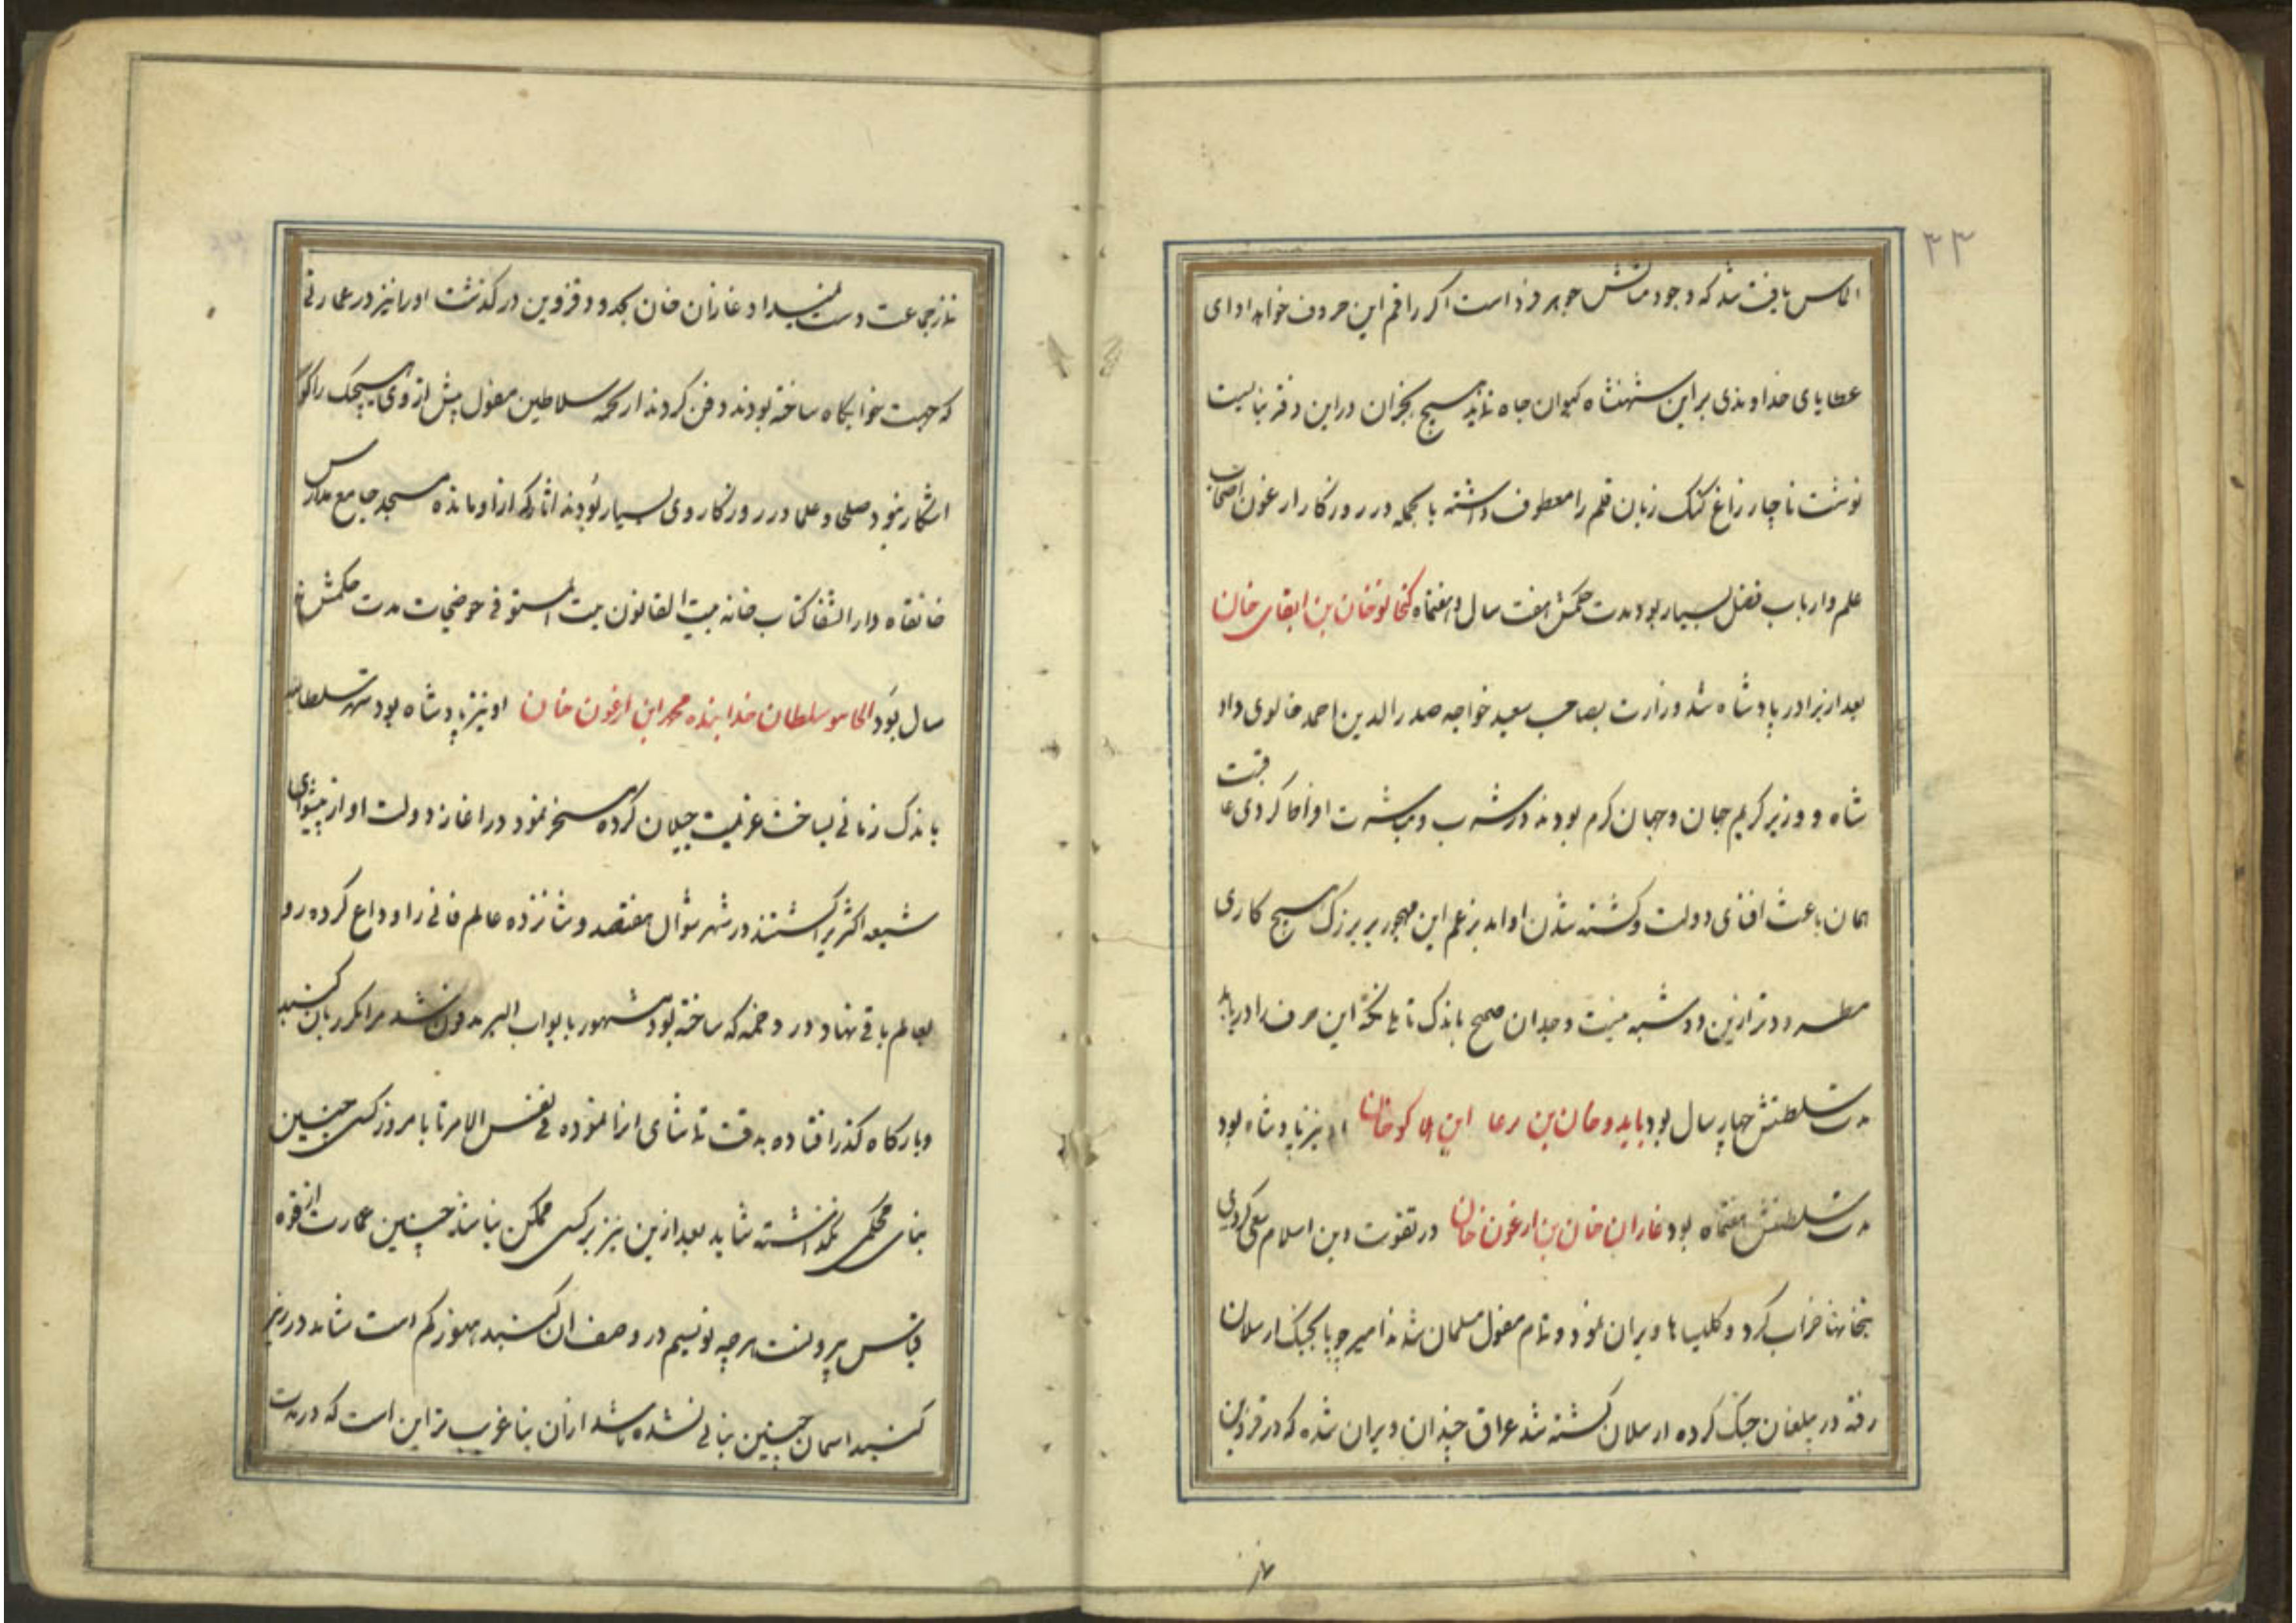 ۲۳
الماس یافت شد که وجود مبارکش جوهر فرد است اگر راقم این حروف خواهد ادای
عطایای خداوندی براین شهنشاه کیوان جاه نماید هیچ بخزان دراین دفتر نبایست
نوشت ناچار زاغ کنک زبان قلم را معطوف داشته بالجمله در روزگار ارغون اصحاب
علم وارباب فضل بسیار بود مدت حکمش هفت سال و هفتماه کنخاتوخان بن ابقای خان
بعد از برادر پادشاه شد وزارت بصاحب سعید خواجه صدرالدین احمد خالوی داد
شاه و وزیر کریم جان و جهان کرم بودند در شرب و مباشرت او افحا کردی عاقبت
همان باعث افنای دولت و کشته شدن او امد بزعم این مهجور بر بزرک هیچ کاری
مطرود تر ازین دو شبه نیست وجدان صحیح باندک تاملی نکته این حرف را دریابد
مدت سلطنتش چهار سال بود بایدوخان بن رعا ابن هلاکوخان او نیز پادشاه بود
مدت سلطنتش هفتماه بود غازان خان بن ارغون خان در تقوت دین اسلام سعی کردی
بتخانها خراب کرد و کلیسا ها ویران نمود و تمام مغول مسلمان شدند امیر چوپا بجنک ارسلان
رفته در بیلغان جنک کرده ارسلان کشته شد عراق چندان ویران شده که در قزوین
نماز
نماز جماعت دست نمیداد غازان خان بحدود قزوین درکذشت اورا نیز در عمارتی
که جهت خوابکاه ساخته بودند دفن کردند از جمله سلاطین مغول پیش از وی هیچیک را کور
اشکار نبود صلحا و علما در روزکار وی بسیار بودند اثار که ازاو مانده مسجد جامع مدارس
خانقاه دار الشفا کتاب خانه بیت القانون بیت المستوفی حوضجات مدت حکمش نه
سال بود الجاتیو سلطان خدابنده محمد ابن ارغون خان او نیز پادشاه بود شهر سلطانیه
باندک زمانی بساخت عزیمت جیلان کرده مسخر نمود در اغاز دولت او از پیشوای
شیعه اکثر برکشتند در شهر شوال هفتصد و شانزده عالم فانی را وداع کرده رو
بعالم باقی نهاد و در دخمه که ساخته بود مشهور بابواب البر مدفون شد مرا مکرر بان کنبد
وبارکاه کذر افتاده بدقت تماشای انرا نموده فی نفس الامر تا بامروز کسی چنین
بنای محکمی نکذاشته شاید بعد ازین نیز بر کسی ممکن نباشد چنین عمارت از قوه
قیاس بیرونست هرچه نویسیم در وصف ان کنبد هنوز کم است شاید در زیر
کنبد اسمان چنین بنائی نشده باشد ازان بنا غریب تر این است که در مدت